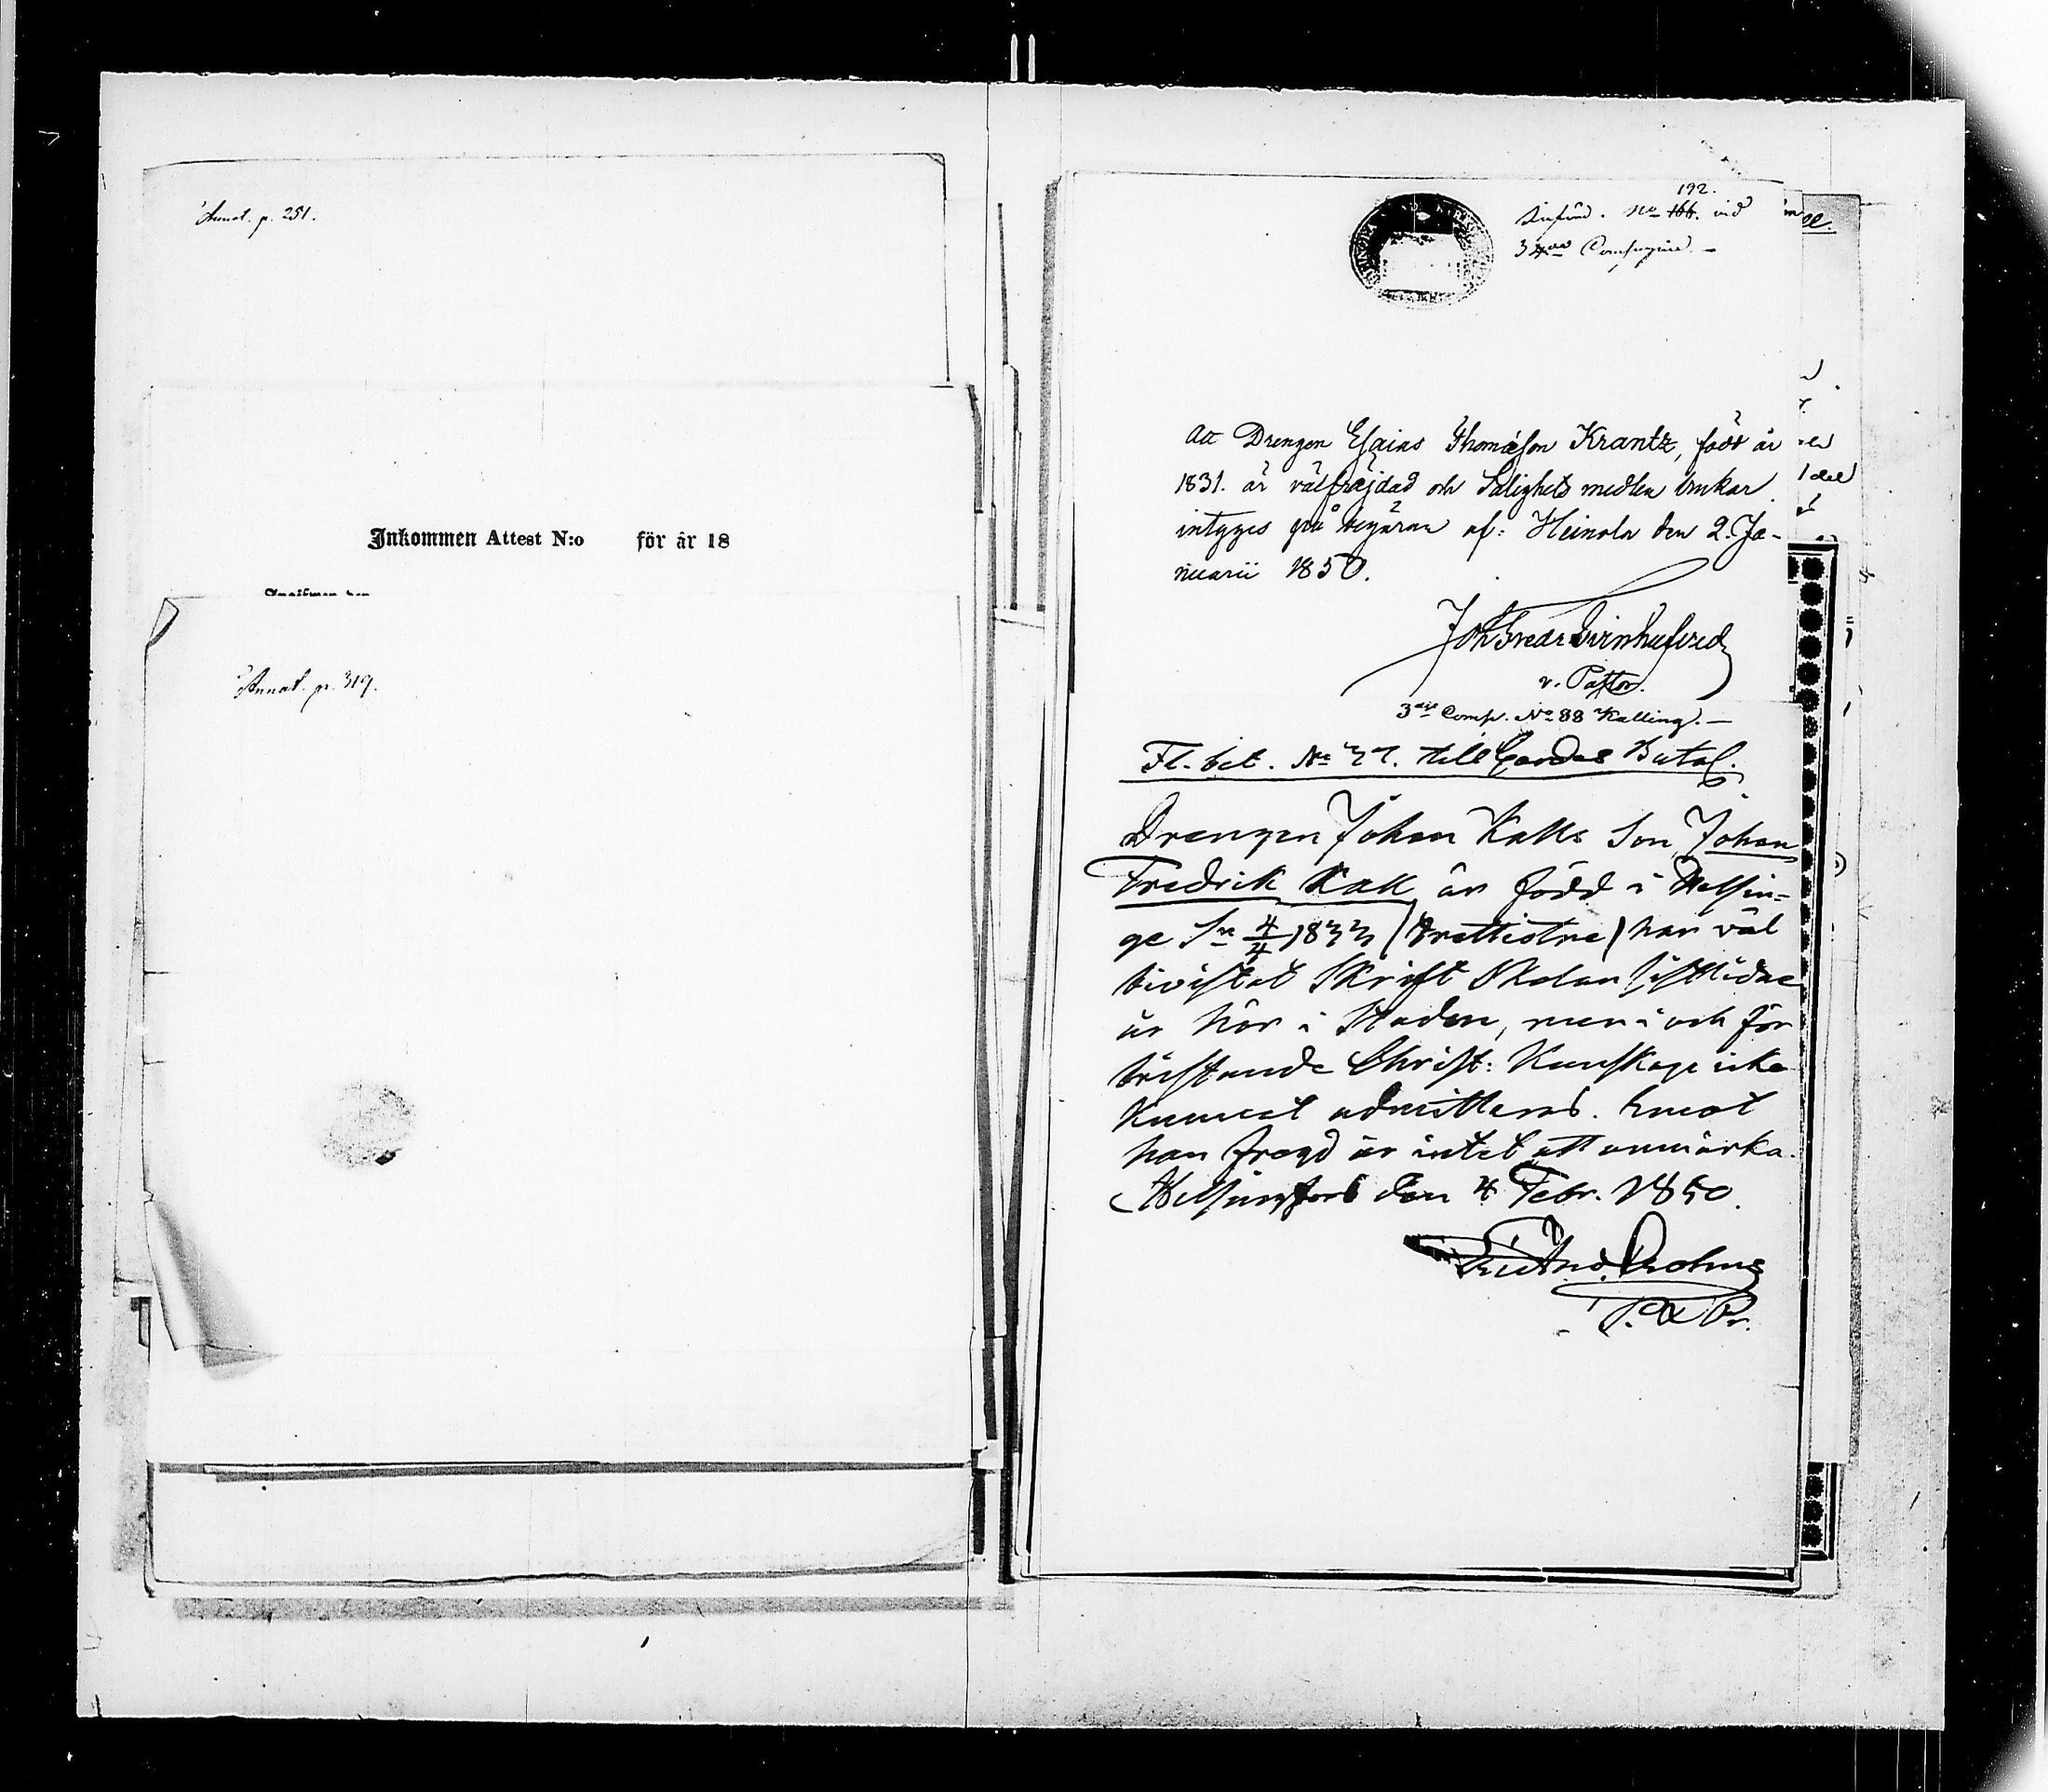 Annot. p. 251.
Inkommen Attest N:o för år 18
Annot. p. 317.
192.
Införd. No 166. vid
3 Compagnie. —
Att Drengen Esaias Thomasson Krantz, född år
1831. är välfräjdad och Salighets medlen brukar
intyges på begäran af: Heinola den 2. Ja-
nuarii 1850.
Joh Fredr Svinhufvud
v. Pastor.
3die Comp. No 88 Kalling. —
Fl. bet. No 37. till Gardes Batal.
Drengen Johan Kalks Son, Johan
Fredrik Kalk är född i Helsin=
ge Sn 4/4 1833 (trettiotre) har väl
bivistat Skrift Skolan sistlidne
år här i Staden, men i och för
bristande Christ: Kunskap icke
kunnat admitteras. Emot
han fregd är intet att anmärka.
Helsingfors den 4 Febr. 1850.